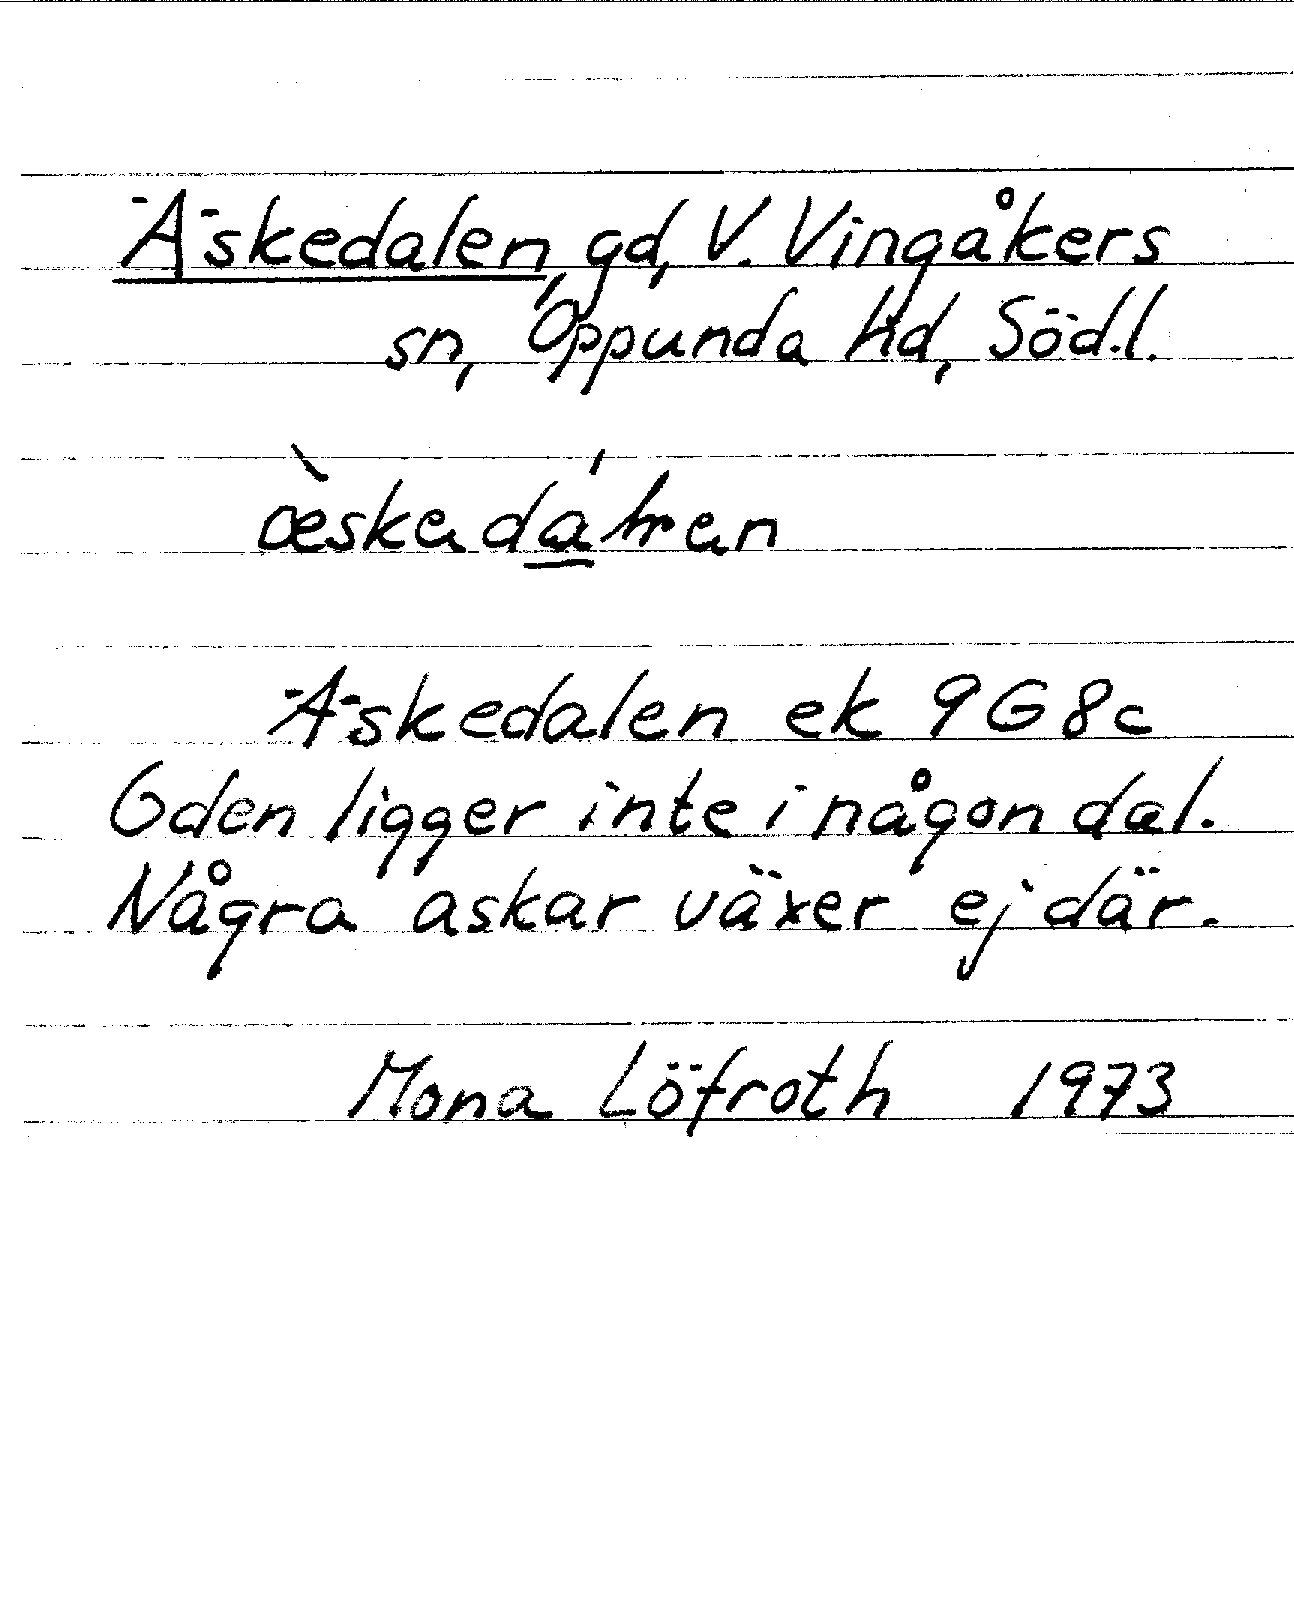 Äskedalen, gd, V. Vingåkers
sn, Oppunda hd, Söd.l.
Äskedalen ek 9G8c
Gden ligger inte i någon dal.
Några askar växer ej där.
Mona Löfroth 1973